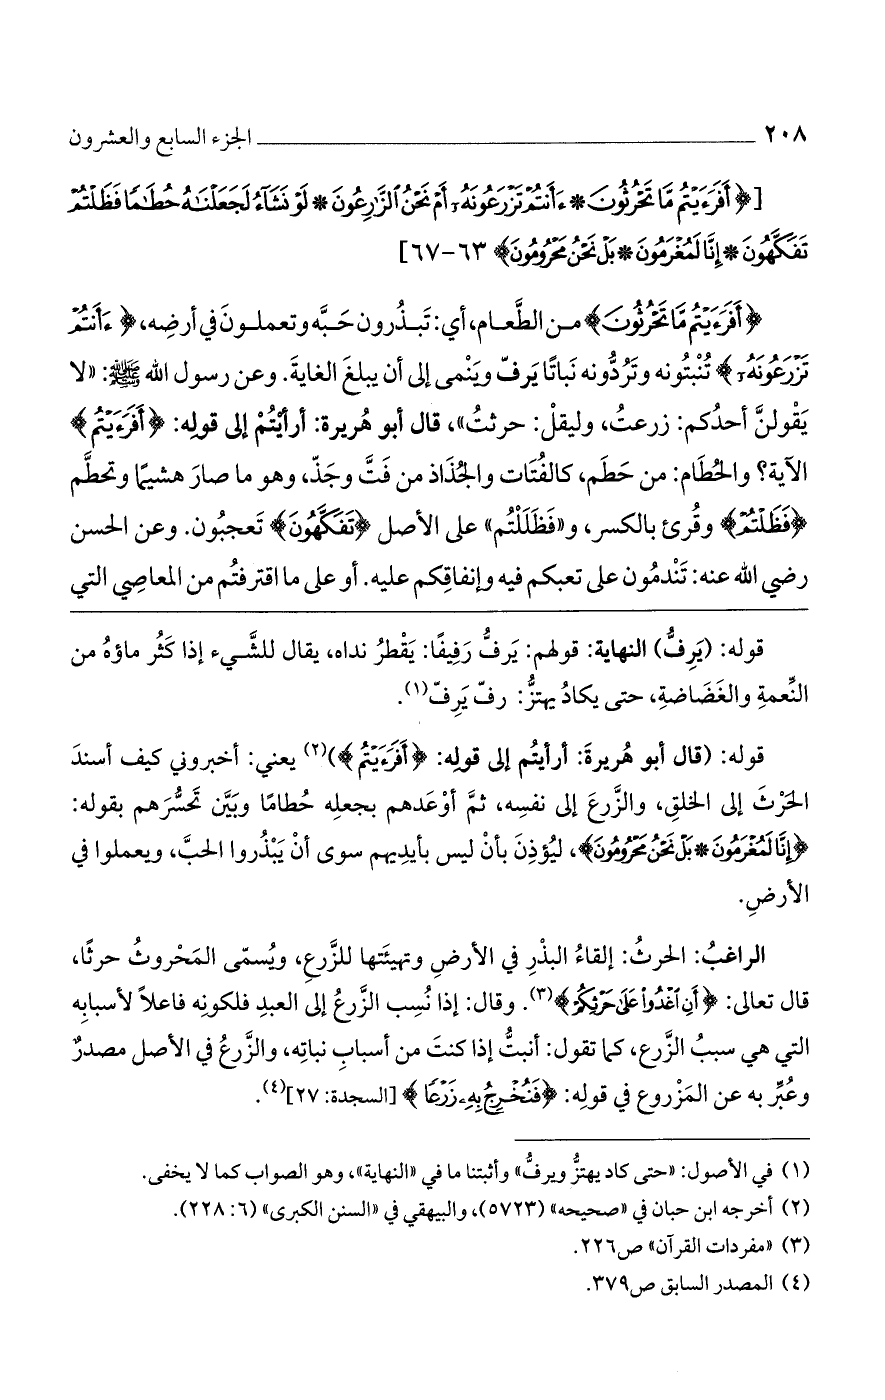 ٢٠٨ الجزء السابع والعشرون
[﴿أَفَرَءَيْتُم مَّا تَحْرُثُونَ * ءَأَنتُمْ تَزْرَعُونَهُۥٓ أَمْ نَحْنُ ٱلزَّٰرِعُونَ * لَوْ نَشَآءُ لَجَعَلْنَٰهُ حُطَٰمًا فَظَلْتُمْ
تَفَكَّهُونَ * إِنَّا لَمُغْرَمُونَ * بَلْ نَحْنُ مَحْرُومُونَ﴾ ٦٣-٦٧]
﴿أَفَرَءَيْتُم مَّا تَحْرُثُونَ﴾ من الطَّعام، أي: تَبذُرون حَبَّه وتعملونَ في أرضِه، ﴿ءَأَنتُمْ
تَزْرَعُونَهُۥٓ﴾ تُنْبتُونه وتَرُدُّونه نَباتًا يَرفّ ويَنْمى إلى أن يبلغَ الغايةَ. وعن رسول الله ﷺ: «لا
يَقْولنَّ أحدُكم: زرعتُ، وليقلْ: حرثتُ»، قال أبو هُريرة: أرأيْتُمْ إلى قولِه: ﴿أَفَرَءَيْتُم﴾
الآية؟ والحُطَام: من حَطَم، كالفُتَات والجُذَاذ من فَتَّ وجَذّ، وهو ما صارَ هشيمًا وتحطَّم
﴿فَظَلْتُمْ﴾ وقُرئ بالكسر، و«فَظَلَلْتُم» على الأصل ﴿تَفَكَّهُونَ﴾ تَعجبُون. وعن الحسن
رضي الله عنه: تَنْدمُون على تعبكم فيه وإنفاقِكم عليه. أو على ما اقترفتُم من المعاصِي التي
قوله: (يَرِفُّ) النهاية: قولهم: يَرفُّ رَفِيفًا: يَقْطرُ نداه، يقال للشَّيء إذا كَثُر ماؤهُ من
النِّعمةِ والغَضَاضةِ، حتى يكادُ يهتزُّ: رفّ يَرِفّ(١).
قوله: (قال أبو هُريرةَ: أرأيتُم إلى قولِه: ﴿أَفَرَءَيْتُم﴾)(٢) يعني: أخبروني كيف أسندَ
الحَرْثَ إلى الخلقِ، والزَّرعَ إلى نفسِه، ثمَّ أوْعَدهم بجعلِه حُطامًا وبَيَّن تَحسُّرَهم بقوله:
﴿إِنَّا لَمُغْرَمُونَ * بَلْ نَحْنُ مَحْرُومُونَ﴾، ليُؤذِنَ بأنْ ليس بأيدِيهم سوى أنْ يَبْذُروا الحبَّ، ويعملوا في
الأرضِ.
الراغبُ: الحرثُ: إلقاءُ البذْرِ في الأرضِ وتهيئَتها للزَّرعِ، ويُسمّى المَحْروثُ حرثًا،
قال تعالى: ﴿أَنِ ٱغْدُوا۟ عَلَىٰ حَرْثِكُمْ﴾(٣). وقال: إذا نُسِب الزَّرعُ إلى العبدِ فلكونِه فاعلاً لأسبابِه
التي هي سببُ الزَّرع، كما تقول: أنبتُّ إذا كنتَ من أسبابِ نباتِه، والزَّرعُ في الأصل مصدرٌ
وعُبِّر به عن المَزْروع في قولِه: ﴿فَنُخْرِجُ بِهِۦ زَرْعًا﴾ [السجدة: ٢٧](٤).
(١) في الأصول: «حتى كاد يهتزُّ ويرفُّ» وأثبتنا ما في «النهاية»، وهو الصواب كما لا يخفى.
(٢) أخرجه ابن حبان في «صحيحه» (٥٧٢٣)، والبيهقي في «السنن الكبرى» (٦: ٢٢٨).
(٣) «مفردات القرآن» ص٢٢٦.
(٤) المصدر السابق ص٣٧٩.